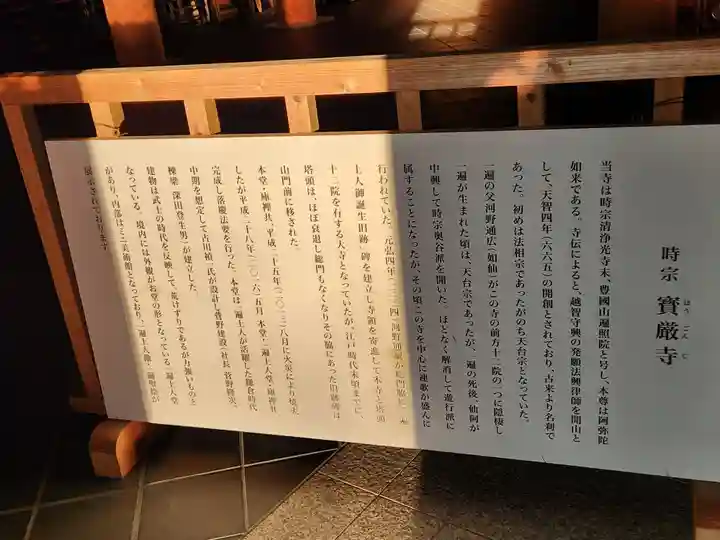 時宗 寳厳寺
ほう ごん じ
当寺は時宗清浄光寺末、豊國山遍照院と号し、本尊は阿弥陀
如来である。寺伝によると、越智守興の発願法興律師を開山と
して、天智四年(六六五)の開創とされており、古来より名刹で
あった。初めは法相宗であったがのち天台宗となっていた。
一遍の父河野通広(如仏)がこの寺の前方十二院の一つに隠棲し
一遍が生まれた頃は、天台宗であったが、一遍の死後、仙阿が
中興して時宗奥谷派を開いた。ほどなく解消して遊行派に
属することになったが、その頃この寺を中心に連歌が盛んに
行われていた。元弘四年(一三三四)河野通綱が総門脇に「一遍
上人御誕生旧跡」碑を建立し寺領を寄進して本寺と塔頭
十二院を有する大寺となっていたが、江戸時代末頃までに、
塔頭は、ほぼ衰退し総門もなくなりその脇にあった旧跡碑は
山門前に移された。
本堂・庫裡共、平成二十五年(二〇一三)八月に火災により焼失
したが平成二十八年(二〇一六)五月 本堂・一遍上人堂・庫裡
完成し落慶法要を行った。本堂は一遍上人が活躍した鎌倉時代
中期を想定して古川禎一氏が設計し菅野建設(社長 菅野修次、
棟梁 深田登生男)が建立した。
建物は武士の時代を反映して、荒けずりであるが力強いものと
なっている。境内には外観がお堂の形となっている一遍上人堂
があり、内部はミニ美術館となっており、一遍上人像・一遍聖絵が
展示されております。